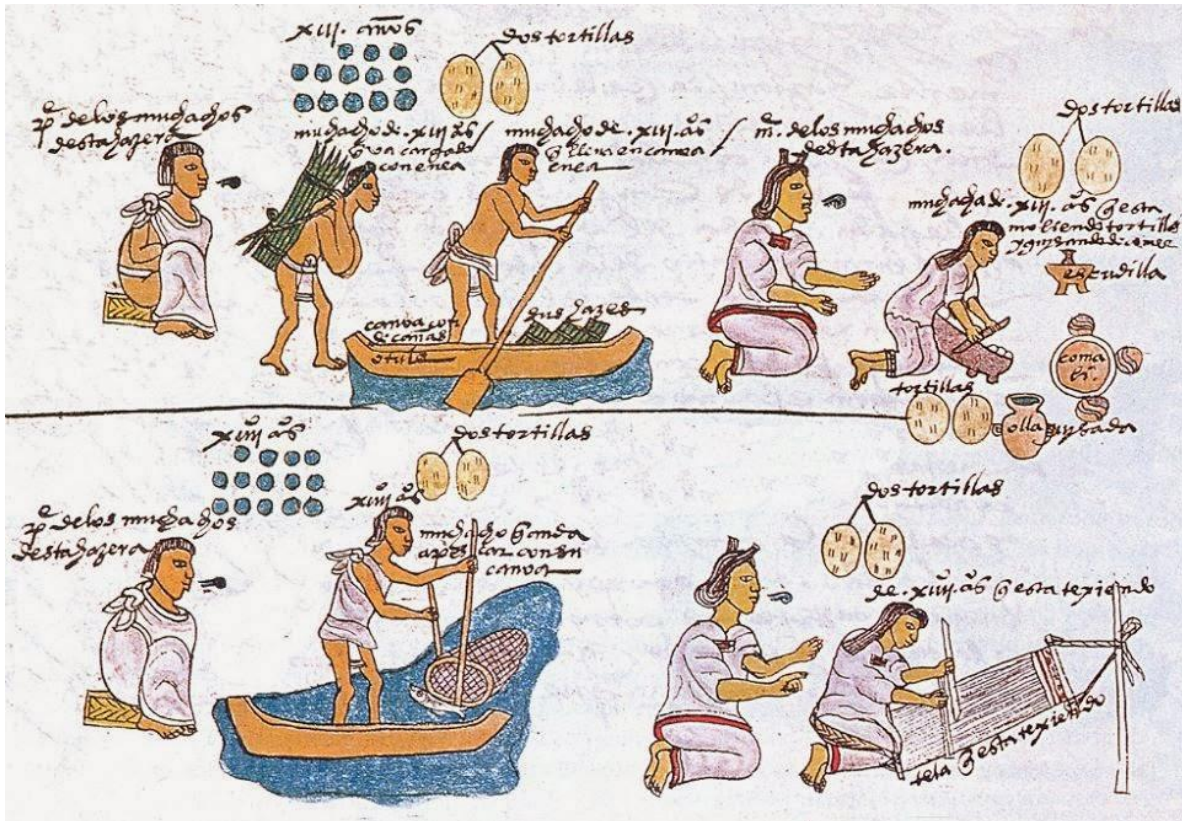 xiii. años
dos tortillas
pᵉ. de los muchachos
desta hazera
muchacho de. xiii. aºs /
q̃ va cargado
con enea
muchacho de. xiii. aºs /
q̃ lleva en canoa
enea
mᵉ. de los muchachos
desta hazera.
dos tortillas
muchacha de. xiii. aºs q̃ esta
moliendo tortillas
y guisando de comer
escudilla
canoa con
de cañas
dus hazes
comali.
tortillas
olla guisada
xiiii aºs
dos tortillas
xiiii aºs
pᵉ de los muchachos
desta hazera
muchacho q̃ anda
a pescar con su
canoa
dos tortillas
de. xiiii. aºs q̃ esta texiendo
tela q̃ esta texiendo